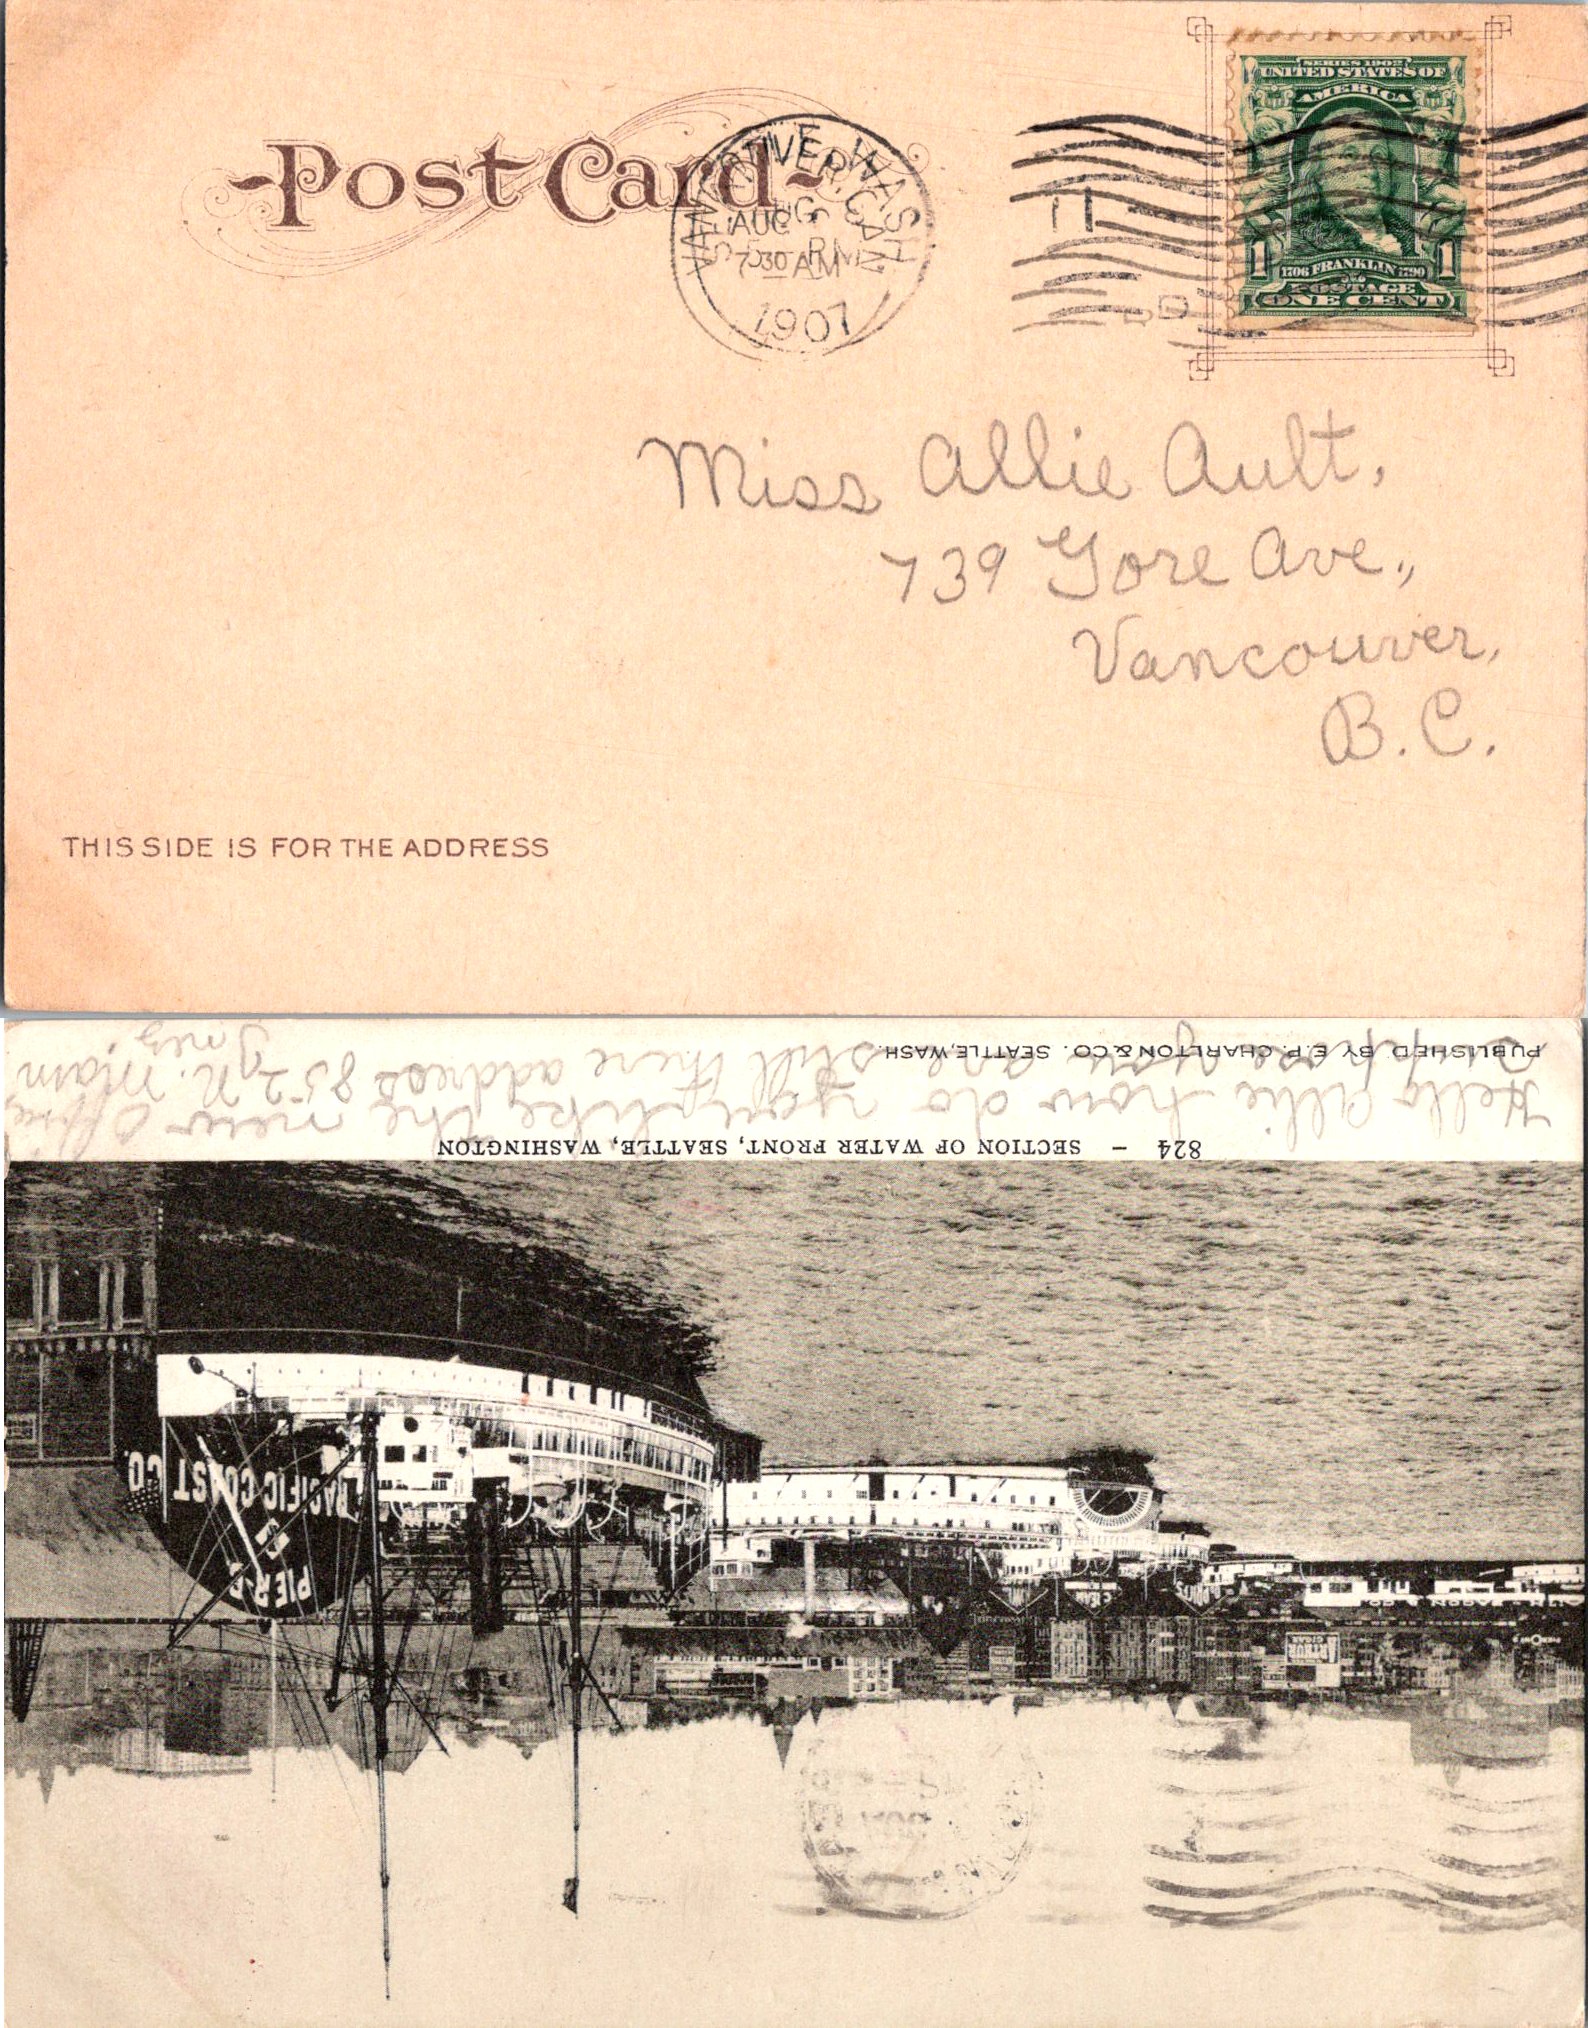 Post Card
SEATTLE, WASH.
VANCOUVER, CAN.
AUG
AUG
7 30 AM
1907
SERIES 1902
UNITED STATES OF
AMERICA
1 1
1706 FRANKLIN 1790
POSTAGE
ONE CENT
Miss Allie Ault,
739 Gore Ave.,
Vancouver,
B.C.
THIS SIDE IS FOR THE ADDRESS
824 - SECTION OF WATER FRONT, SEATTLE, WASHINGTON
Hello Allie how do you like the new office
are you still there address 852 N. Main
Inez
PUBLISHED BY E.P. CHARLTON & CO. SEATTLE, WASH.
PIER
PACIFIC COAST CO.
CIGAR